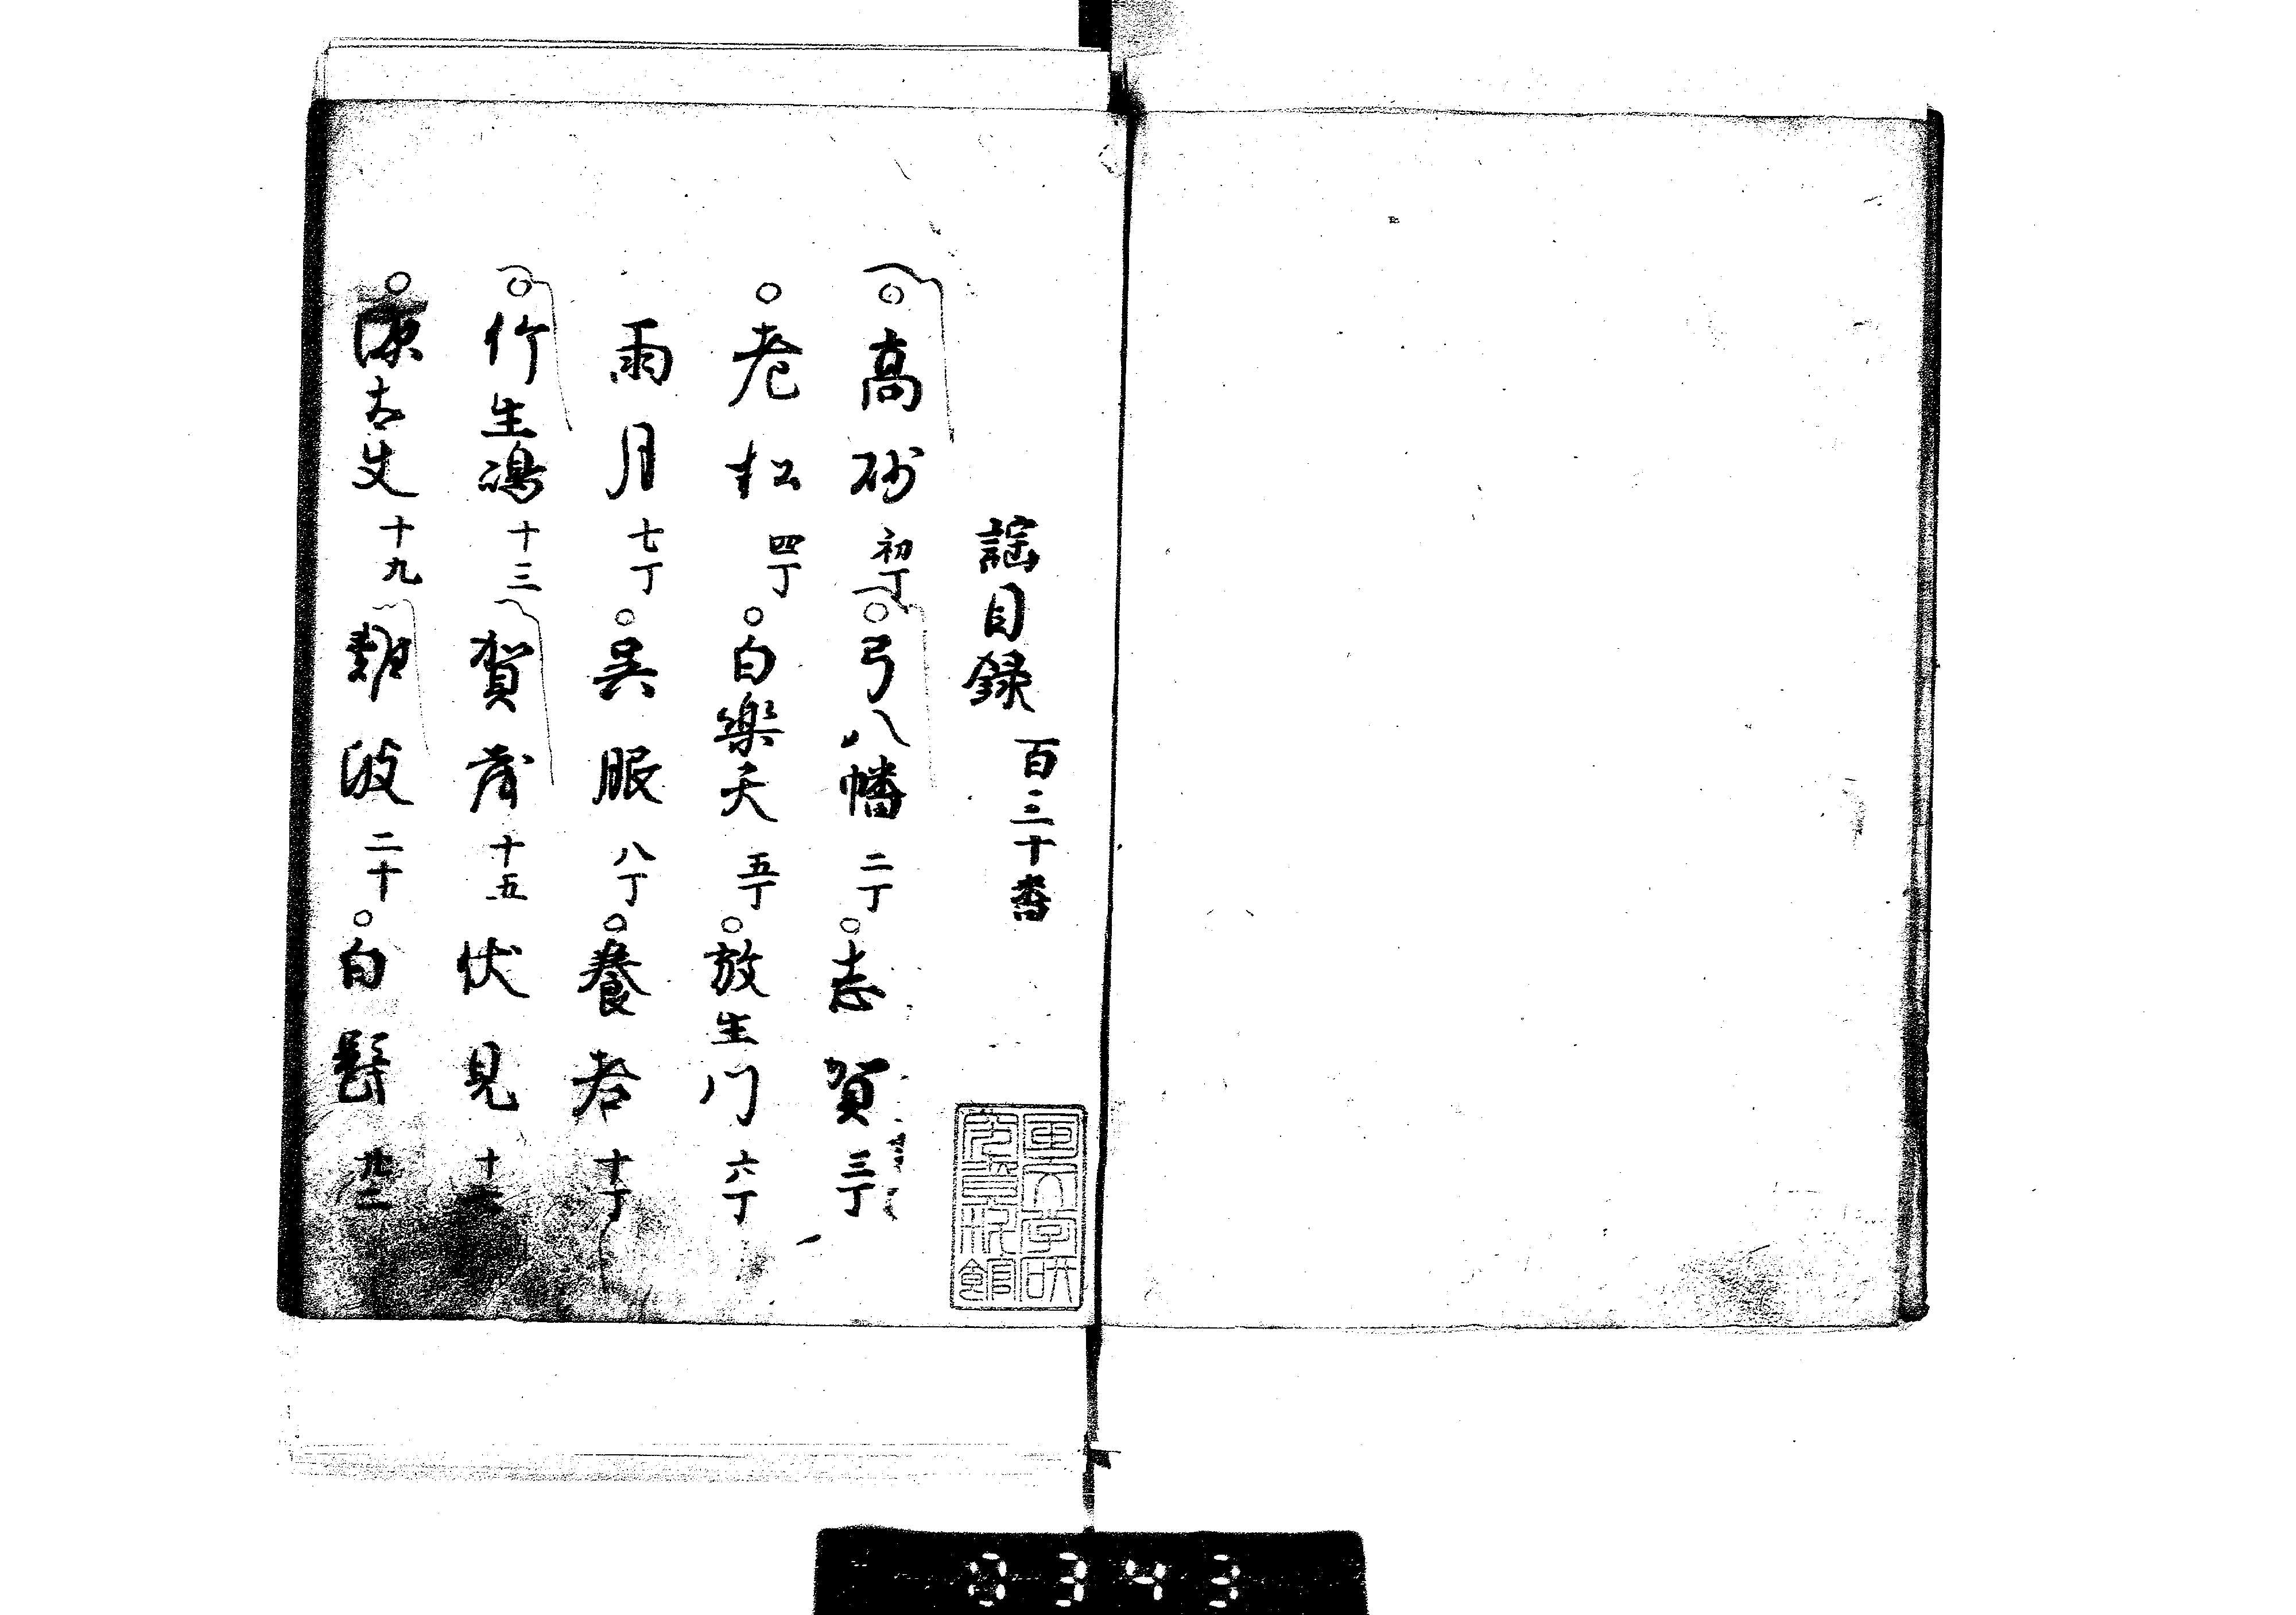 謡目録 百三十番
○高砂 初丁 ○弓八幡 二丁 ○志賀 三丁
○老松 四丁 ○白楽天 五丁 ○放生川 六丁
雨月 七丁 ○呉服 八丁 ○養老 十丁
○竹生嶋 十三 賀茂 十五 伏見 十
○源太夫 十九 難波 二十 ○白髭
国文学研究資料館
0343